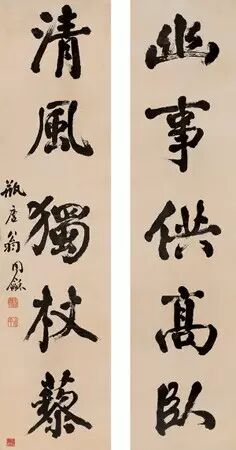 幽事供高卧
清風獨杖藜
瓶廬翁同龢